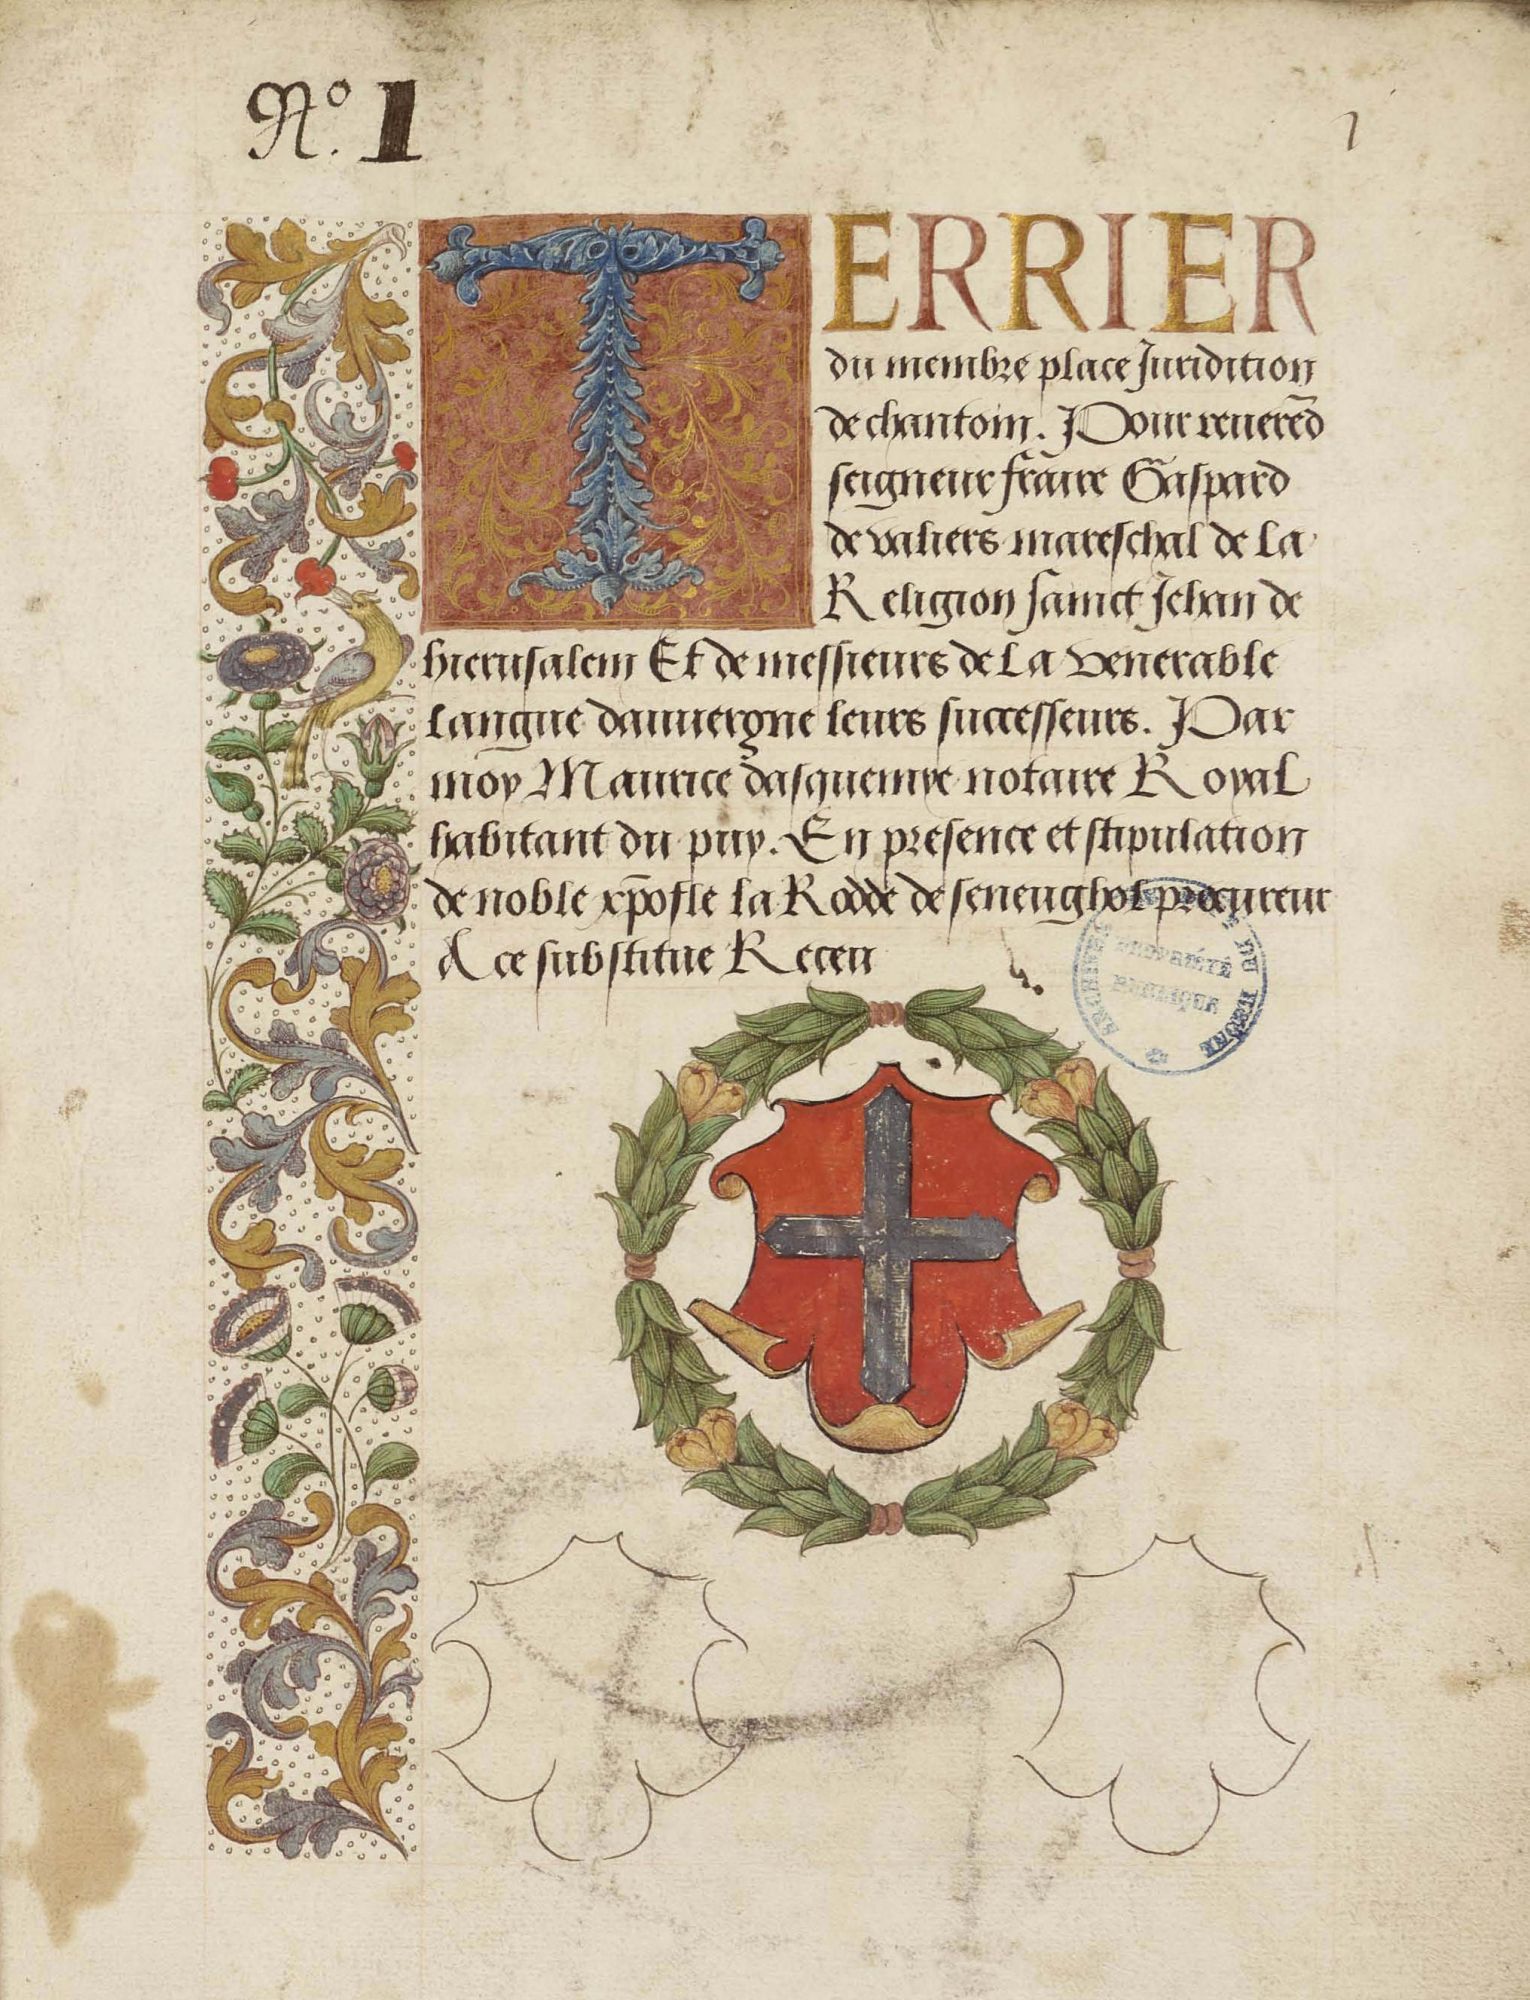 No. 1
1
TERRIER
du membre place Juridition
de chantoin. Pour reuerēd
seigneur fraire Gaspard
de valiers mareschal de la
Religion sainct Jehan de
hierusalem Et de messieurs de la venerable
langue dauuergne leurs successeurs. Par
moy Maurice dasquemye notaire Royal
habitant du puy. En presence et stipulation
de noble xp̄ofle la Rodde de seneughol procureur
A ce substitue Receu
PROPRIÉTÉ
PUBLIQUE